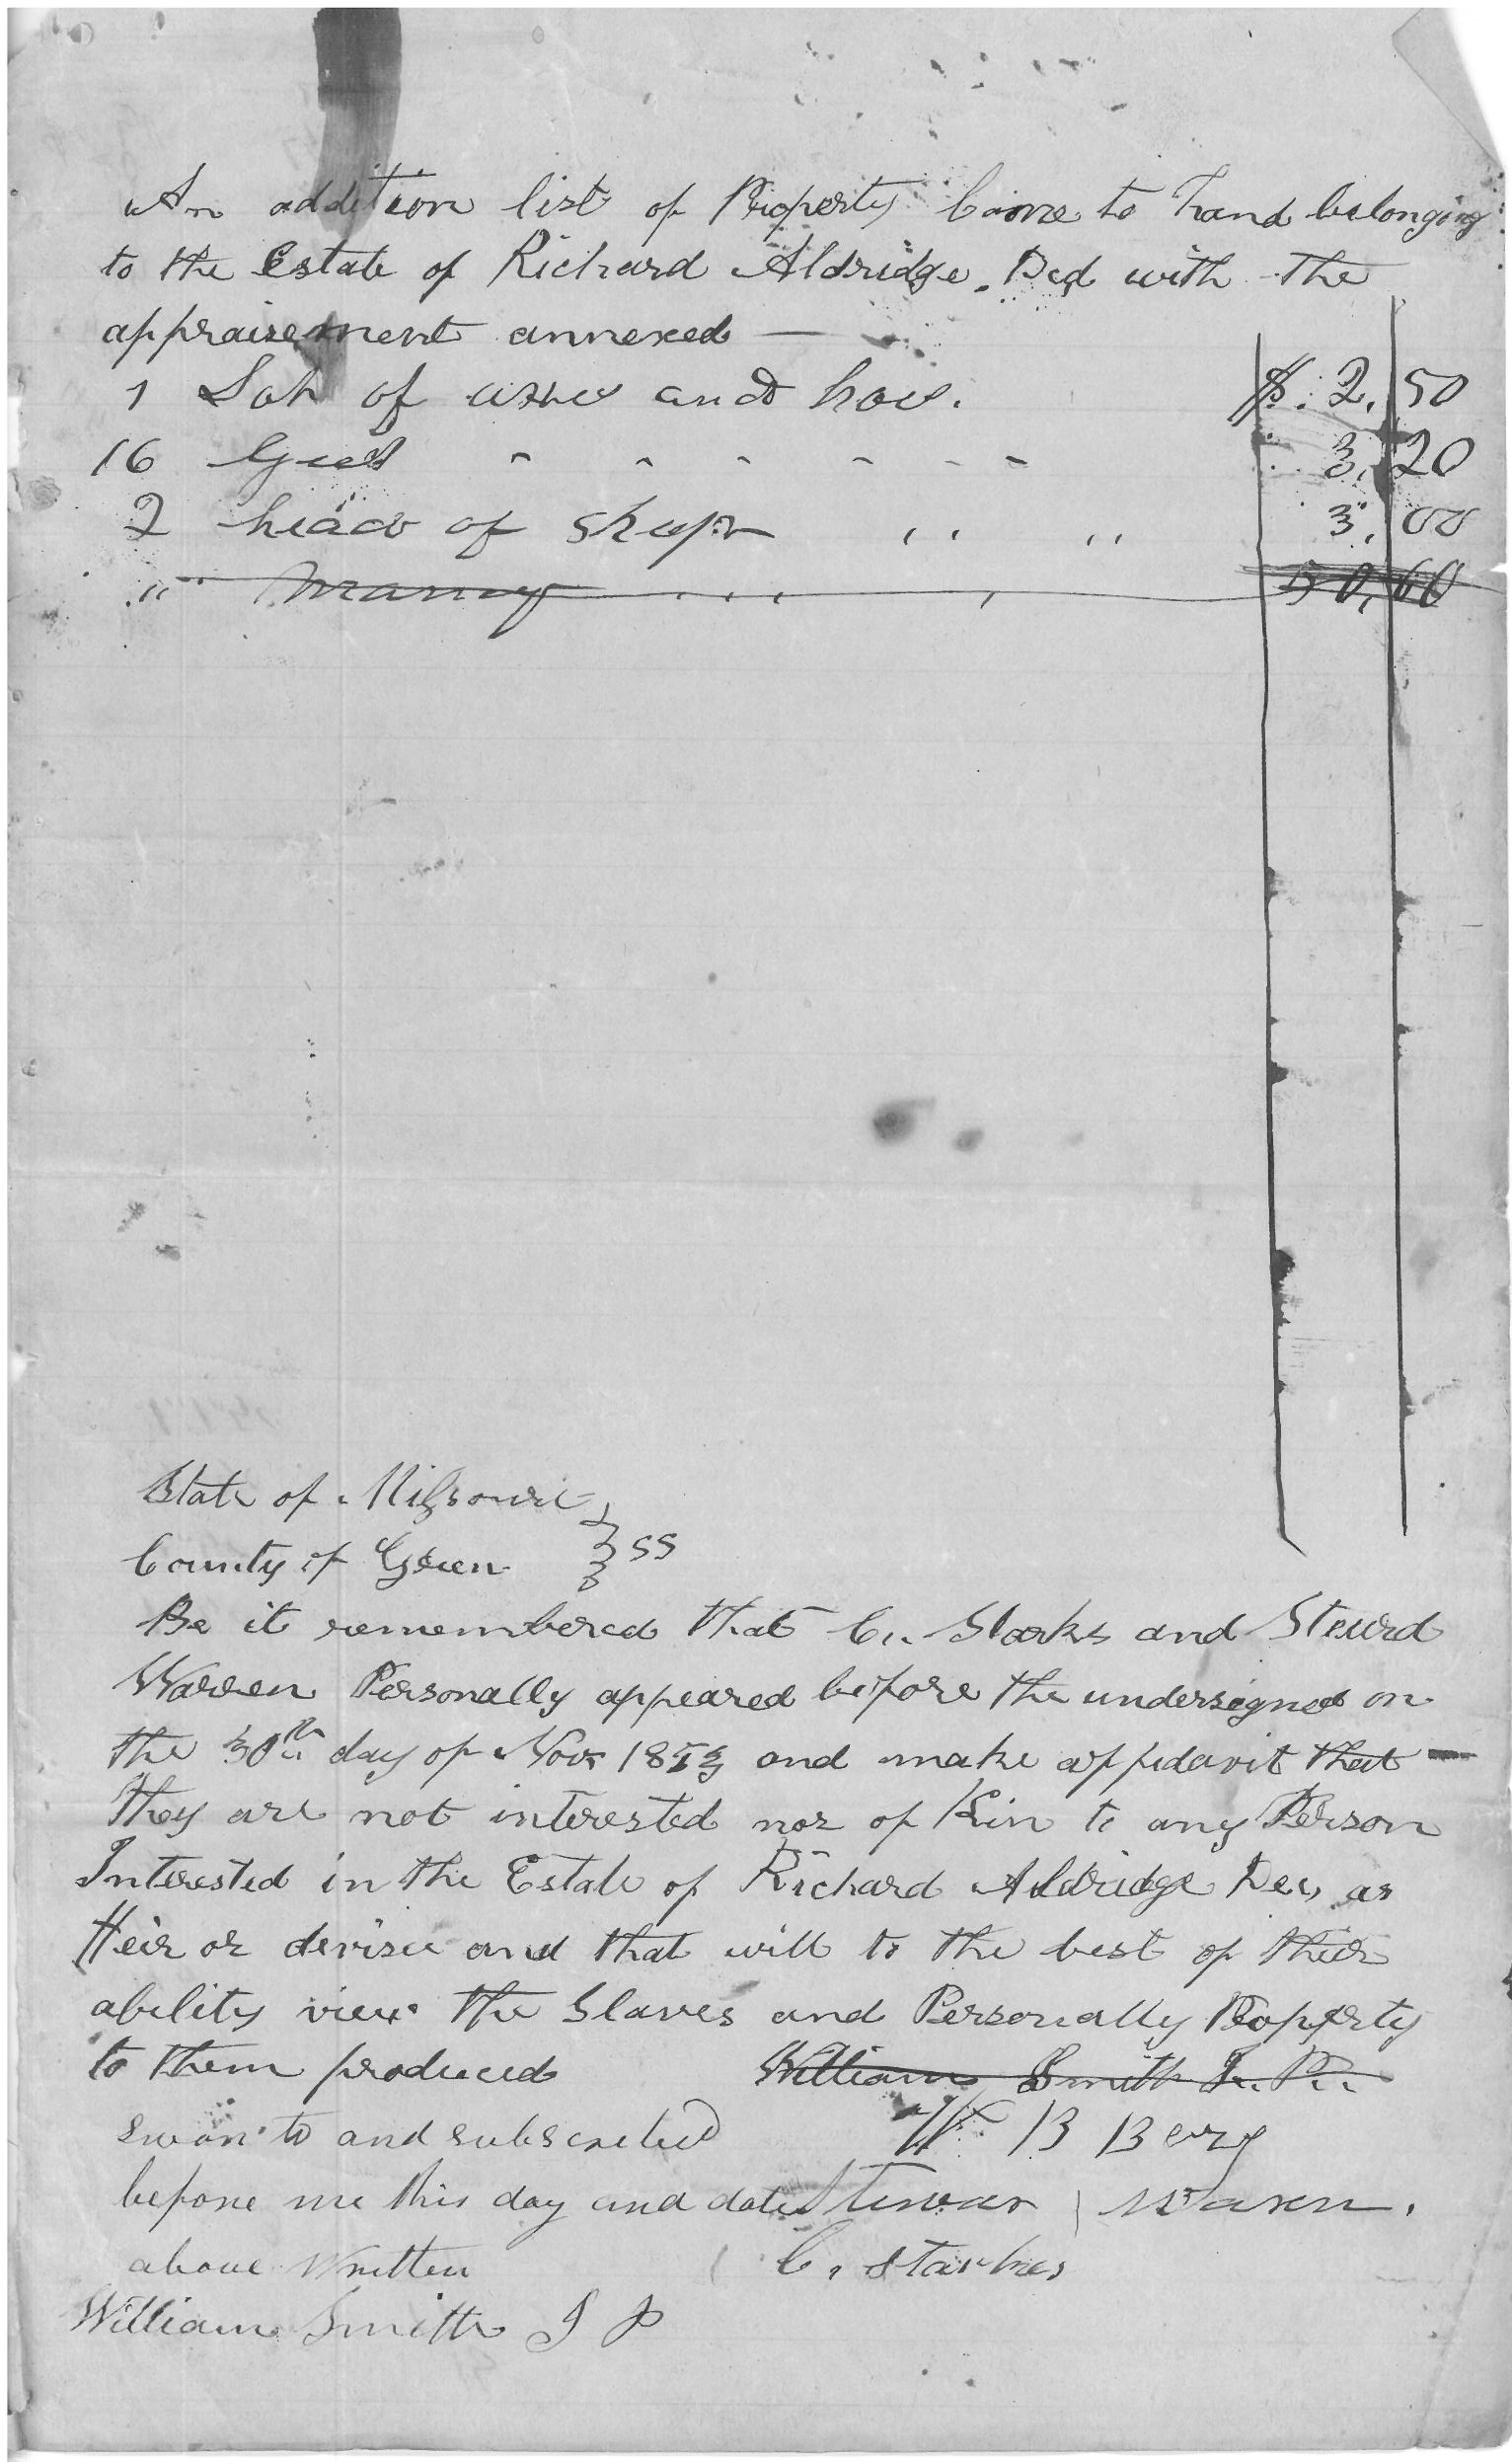 An addition list of Property Come to hand belonging
to the Estate of Richard Aldridge Decd with the
appraisement annexed —
1 Lot of axes and hoes. $ 2.50
16 Geese " " " " " " 3.20
2 head of sheep " " 3.00
" money 50,60
State of Missouri
County of Green } SS
Be it remembered that C. Starks and Steward
Warren Personally appeared before the undersigned on
the 30th day of Nov 1853 and make affidavit that —
they are not interested nor of Kin to any Person
Interested in the Estate of Richard Aldridge Dec, as
Heir or devisee and that will to the best of their
ability view the Slaves and Personally Property
to them produced William Smith J. P.
swon to and subscribed B Berry
before me this day and date Stewar Waren.
above Written C. Starkes
William Smith J P